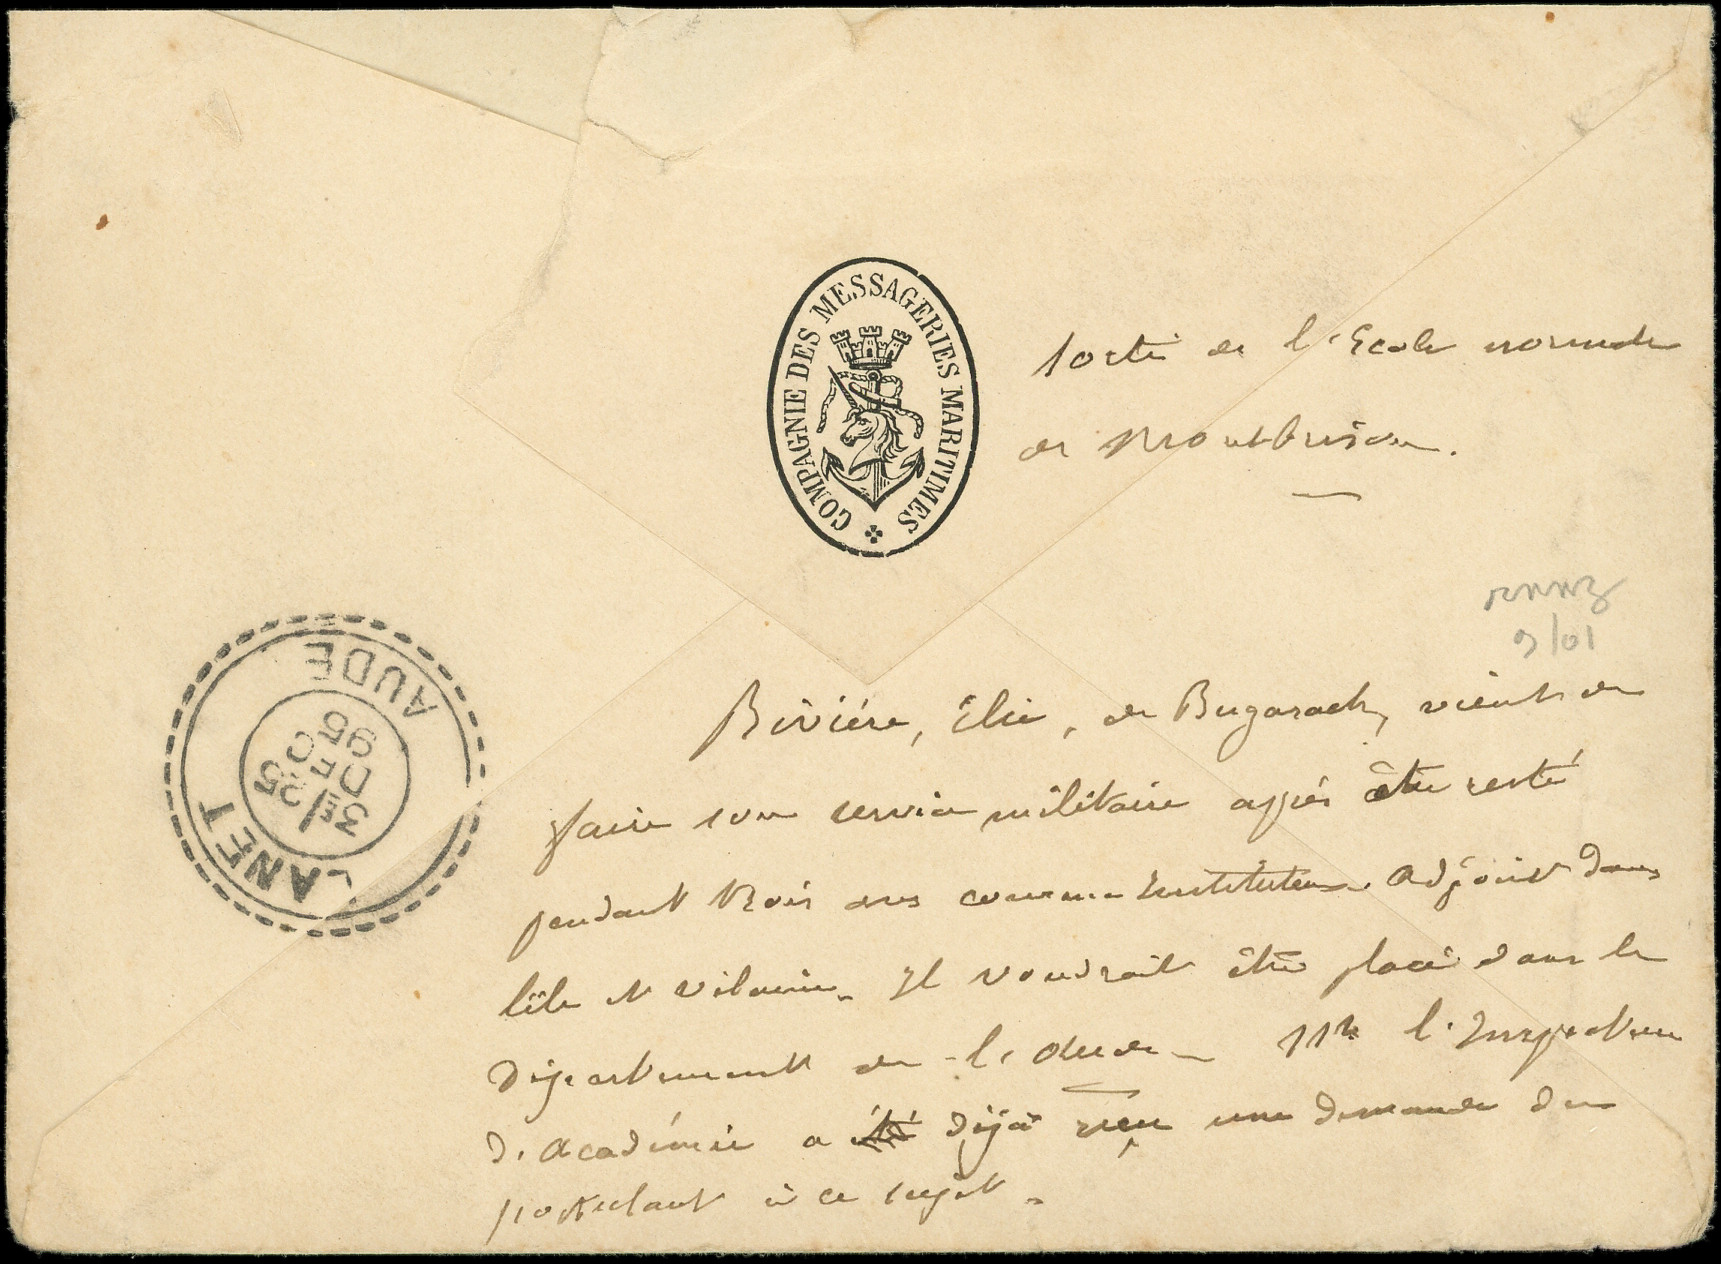 COMPAGNIE DES MESSAGERIES MARITIMES
sorti de l'Ecole normale
de Montbrison.
9/01
Rivière, Élie, de Bugarach, vient de
faire son service militaire après être resté
pendant trois ans comme Instituteur adjoint dans
l'ille et vilaine. Il voudrait être placé dans le
Département de l'Aude - Mr l'Inspecteur
d'Académie a été déjà reçu une demande du
postulant à ce sujet.
ANET
AUDE
3E/25
DEC
95